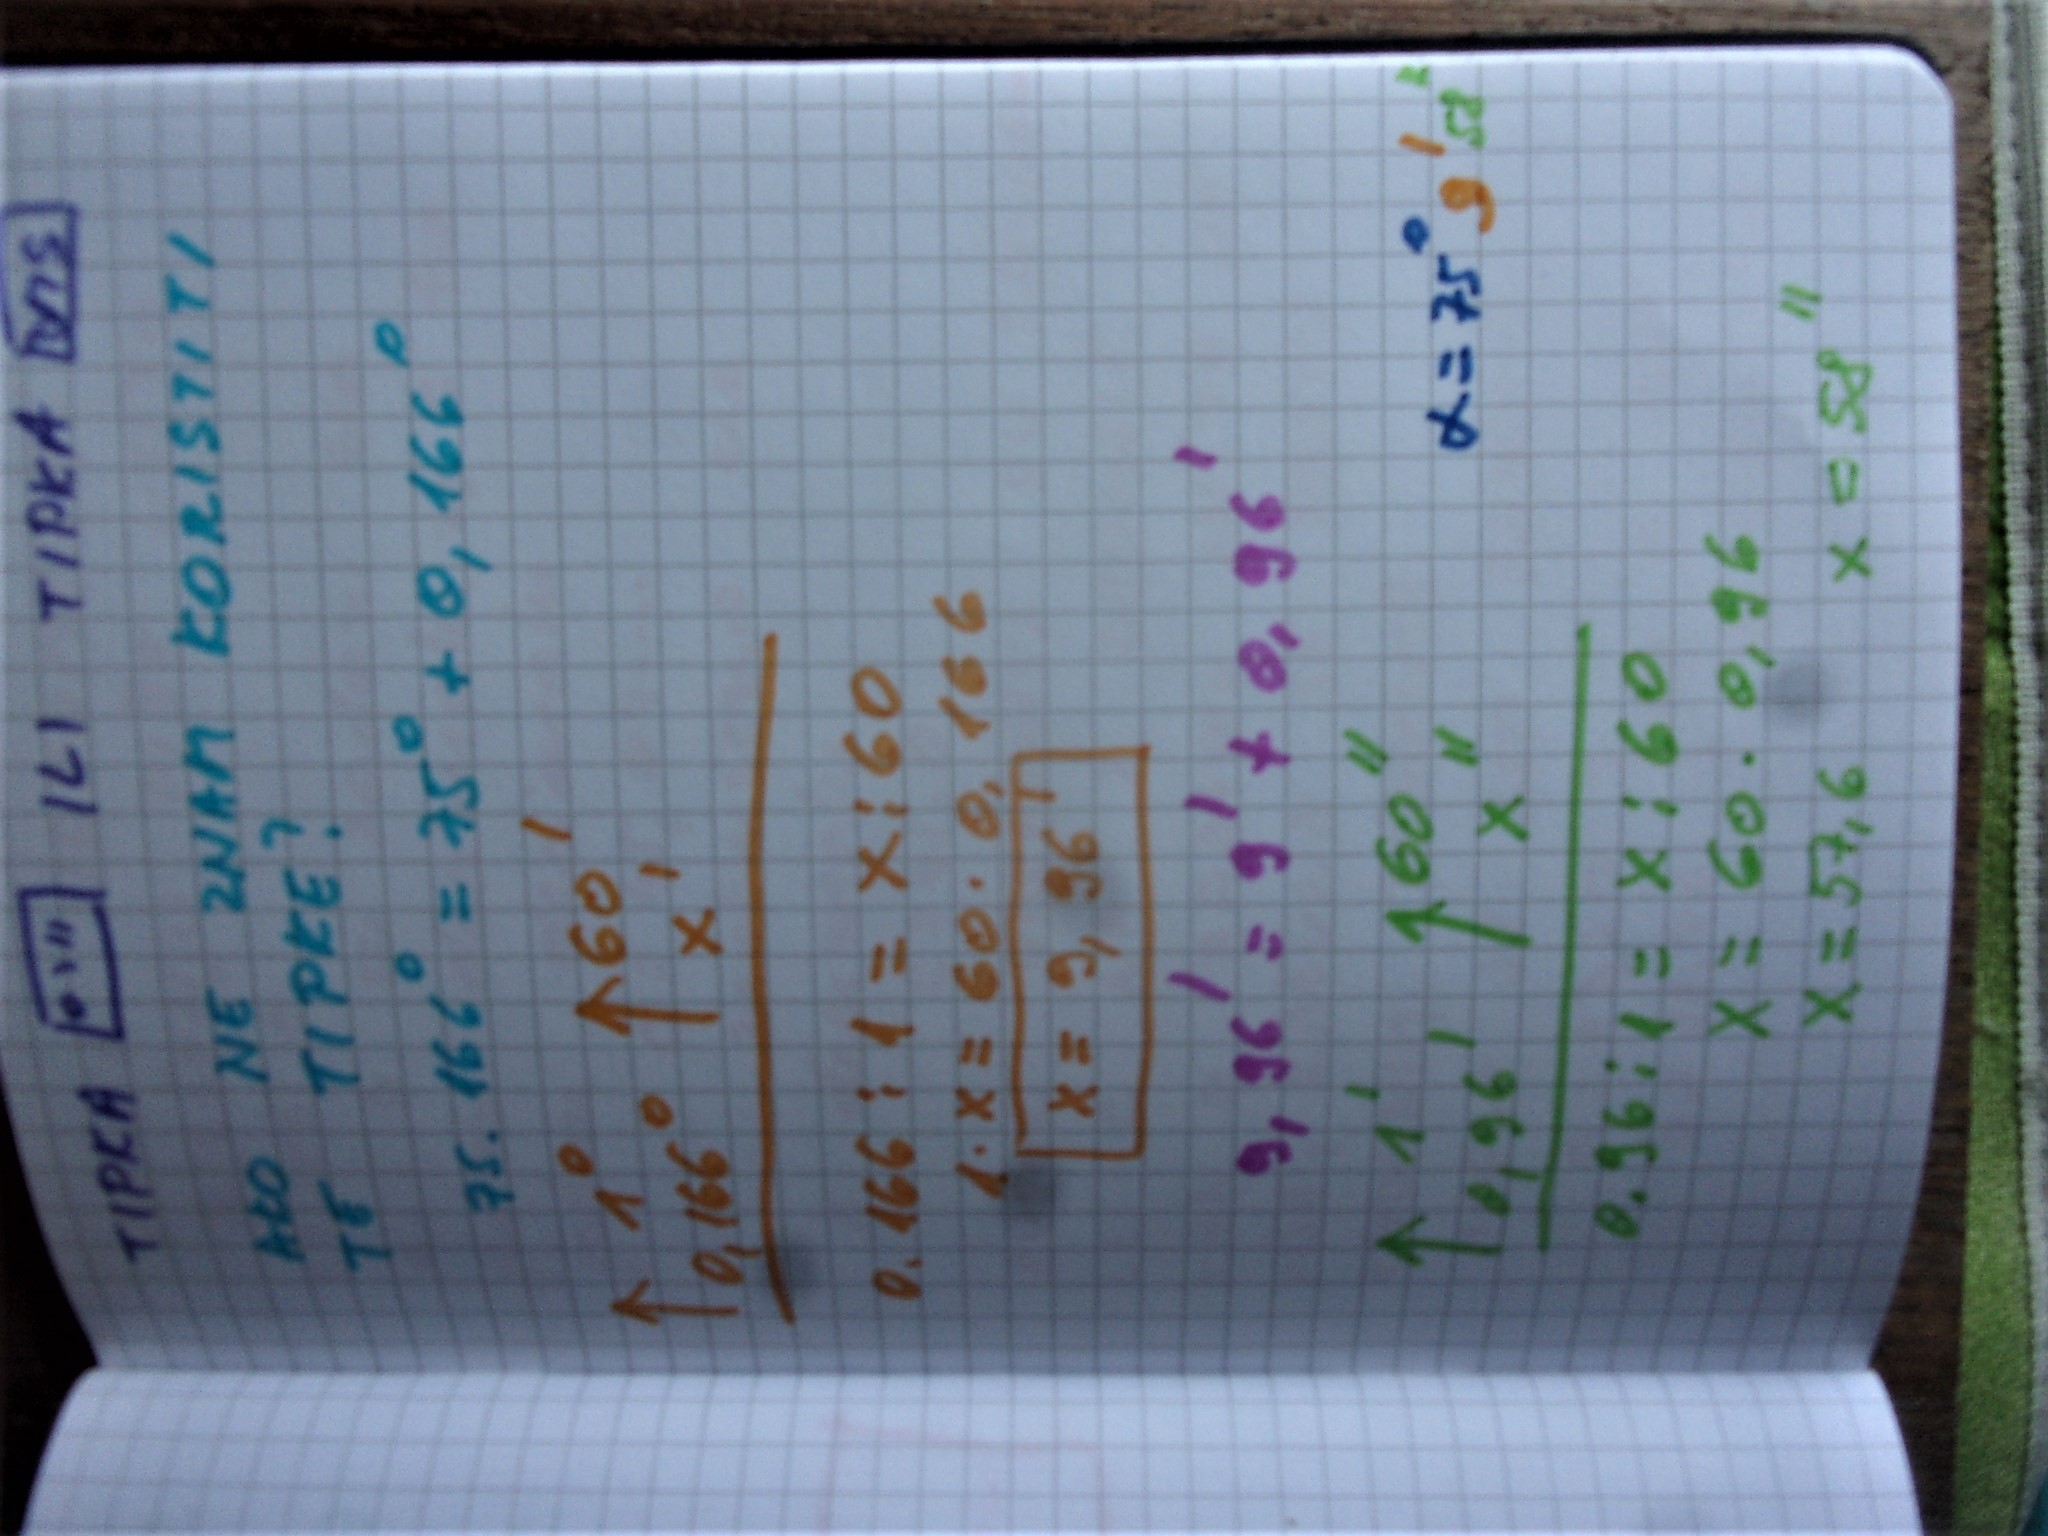 TIPKA °ı" ILI TIPKA DMS
AKO NE ZNAM KORISTITI
TE TIPKE?
75.166° = 75° + 0,166°
↑ 1° ↑ 60'
0,166° x'
0.166 : 1 = x : 60
1·x = 60·0,166
x = 9,96'
9,96' = 9' + 0,96'
↑ 1' ↑ 60"
0,96' x"
α = 75° 9' 58"
0.96 : 1 = x : 60
x = 60·0,96
x = 57,6
x = 58"